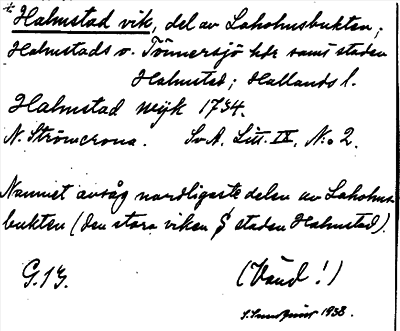 Halmstad vik, del av Laholmsbukten;
Halmstads o. Tönnersjö hdr samt staden
Halmstad; Hallands l.
Halmstad wijk 1734.
N. Strömcrona. SvA. Litt. IX, N:o 2.
Namnet avsåg nordligaste delen av Laholms-
bukten (den stora viken § staden Halmstad).
G. 13.
(Vänd!)
1938.